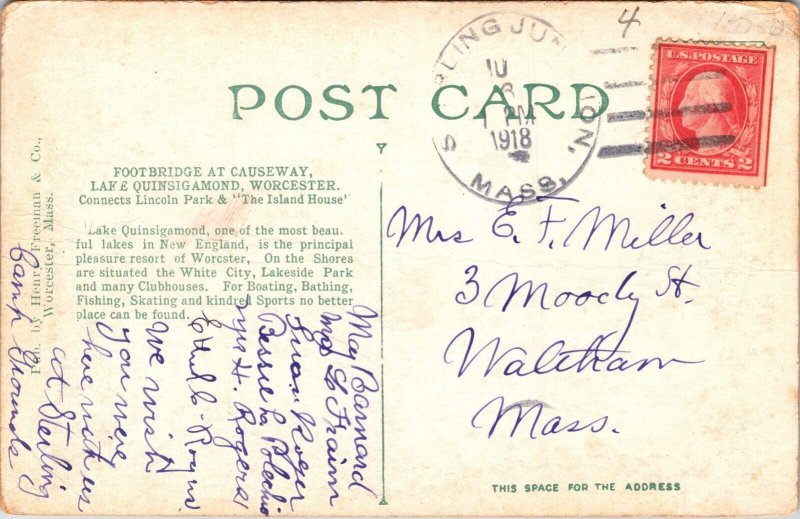 4
POST CARD
STERLING JUNCTION, MASS.
1 PM
1918
U.S. POSTAGE
2 CENTS 2
FOOTBRIDGE AT CAUSEWAY,
LAKE QUINSIGAMOND, WORCESTER.
Connects Lincoln Park & "The Island House'
Lake Quinsigamond, one of the most beau.
ful lakes in New England, is the principal
pleasure resort of Worcster, On the Shores
are situated the White City, Lakeside Park
and many Clubhouses. For Boating, Bathing,
Fishing, Skating and kindred Sports no better
place can be found.
Pub. by Henry Freeman & Co.,
Worcester, Mass.
Mrs E. F. Miller
3 Moody St.
Waltham
Mass.
Camp Grounds
at Sterling
here with us
you were
We wish
H. Rogers
Bessie L
May Barnard
THIS SPACE FOR THE ADDRESS